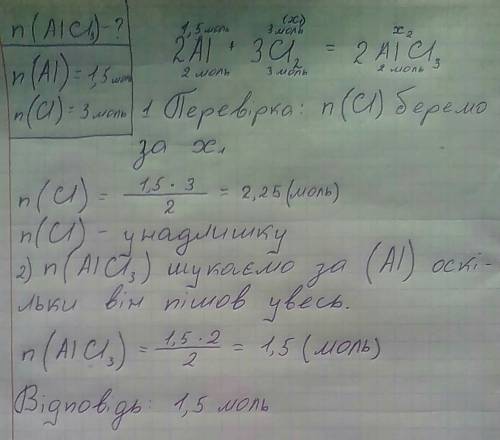 n(AlCl3)-?
n(Al) = 1,5 моль
n(Cl) = 3 моль
1,5 моль 3 моль (x1) x2
2Al + 3Cl2 = 2AlCl3
2 моль 3 моль 2 моль
1 Перевірка: n(Cl) беремо
за x1
n(Cl) = 1,5 · 3 / 2 = 2,25 (моль)
n(Cl) - у надлишку
2) n(AlCl3) шукаємо за (Al) оскі-
льки він пішов увесь.
n(AlCl3) = 1,5 · 2 / 2 = 1,5 (моль)
Відповідь: 1,5 моль